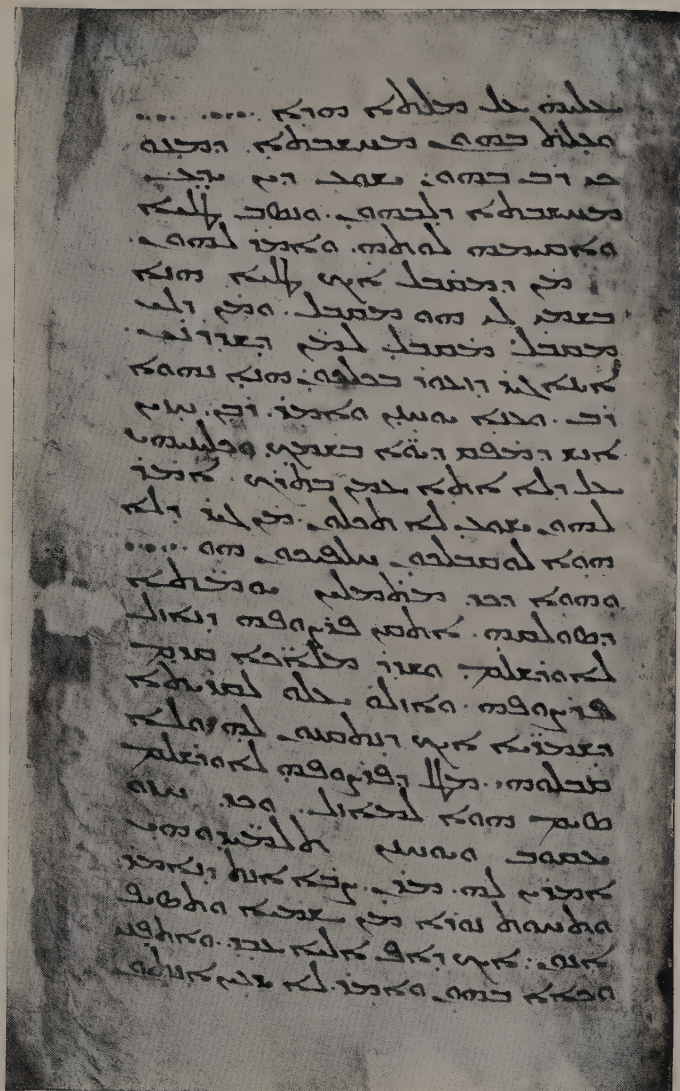 ܥܠ ܡܠܬܐ ܗܕܐ
ܘܥܠܬ ܒܗܘܢ ܡܚܫܒܬܐ ܕܡܢܘ
ܟܝ ܪܒ ܒܗܘܢ. ܝܫܘܥ ܕܝܢ ܝܕܥ
ܡܚܫܒܬܐ ܕܠܒܗܘܢ. ܘܢܣܒ ܛܠܝܐ
ܘܐܩܝܡܗ ܠܘܬܗ. ܘܐܡܪ ܠܗܘܢ.
ܡܢ ܕܡܩܒܠ ܐܝܟ ܛܠܝܐ ܗܢܐ
ܒܫܡܝ ܠܝ ܗܘ ܡܩܒܠ. ܘܡܢ ܕܠܝ
ܡܩܒܠ ܡܩܒܠ ܠܡܢ ܕܫܕܪܢܝ.
ܐܝܢܐ ܓܝܪ ܕܙܥܘܪ ܒܟܠܟܘܢ ܗܢܐ ܢܗܘܐ
ܪܒ. ܘܥܢܐ ܝܘܚܢܢ ܘܐܡܪ. ܪܒܢ. ܚܙܝܢ
ܐܢܫ ܕܡܦܩ ܕܝܘܐ ܒܫܡܟ ܘܟܠܝܢܝܗܝ
ܥܠ ܕܠܐ ܐܬܐ ܥܡܢ ܒܬܪܟ. ܐܡܪ
ܠܗܘܢ ܝܫܘܥ ܠܐ ܬܟܠܘܢ. ܡܢ ܓܝܪ ܕܠܐ
ܗܘܐ ܠܘܩܒܠܟܘܢ ܚܠܦܝܟܘܢ ܗܘ
ܘܗܘܐ ܕܟܕ ܡܬܡܠܝܢ ܝܘܡܬܐ
ܕܣܘܠܩܗ. ܐܬܩܢ ܦܪܨܘܦܗ ܕܢܐܙܠ
ܠܐܘܪܫܠܡ. ܘܫܕܪ ܡܠܐܟܐ ܩܕܡ
ܦܪܨܘܦܗ. ܘܐܙܠܘ ܥܠܘ ܠܩܪܝܬܐ
ܕܫܡܪܝܐ ܐܝܟ ܕܢܬܩܢܘܢ ܠܗ ܘܠܐ
ܩܒܠܘܗܝ. ܡܛܠ ܕܦܪܨܘܦܗ ܠܐܘܪܫܠܡ
ܣܝܡ ܗܘܐ ܠܡܐܙܠ. ܘܟܕ ܚܙܘ
ܝܥܩܘܒ ܘܝܘܚܢܢ ܬܠܡܝܕܘܗܝ
ܐܡܪܝܢ ܠܗ. ܡܪܢ. ܨܒܐ ܐܢܬ ܕܢܐܡܪ
ܘܬܚܘܬ ܢܘܪܐ ܡܢ ܫܡܝܐ ܘܬܣܝܦ
ܐܢܘܢ. ܐܝܟ ܕܐܦ ܐܠܝܐ ܥܒܕ. ܘܐܬܦܢܝ
ܘܟܐܐ ܒܗܘܢ ܘܐܡܪ. ܠܐ ܝܕܥܝܢ ܐܢܬܘܢ